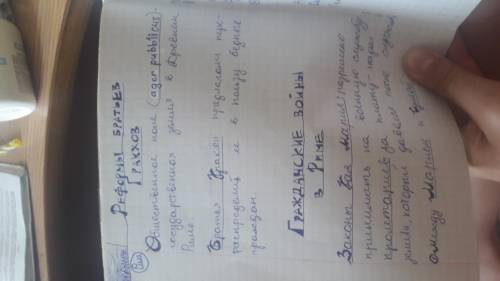 Реформы братьев
Гракхов
Общественное поле (ager publicus) -
государственная земля в Древнем
Риме
Братья Гракхи предложили пере-
распределить ее в пользу бедных
граждан.
Гражданские войны
в Риме
Законы Гая Мария: разрешено
принимать на военную службу
пролетариев за плату
земли, который давал
между Марием и